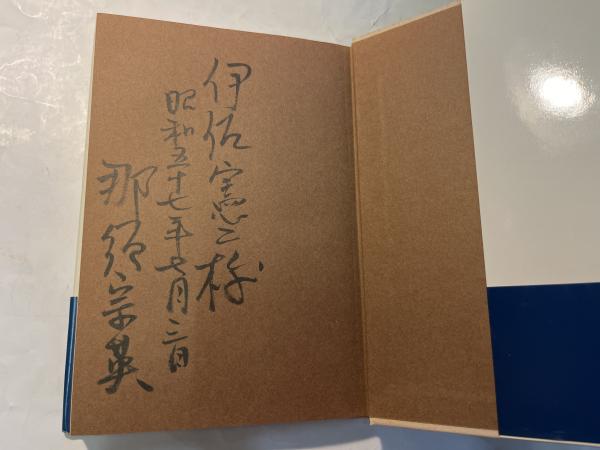 伊佐憲二様
昭和五十七年七月三日
那須宗英